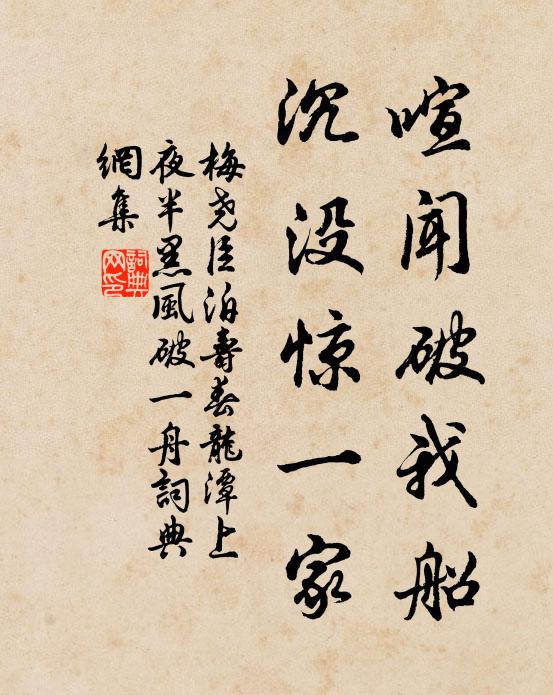 喧闻破我船
沉没惊一家
梅尧臣泊寿春龍潭上
夜半黑風破一舟詞典
網集
詞典網印